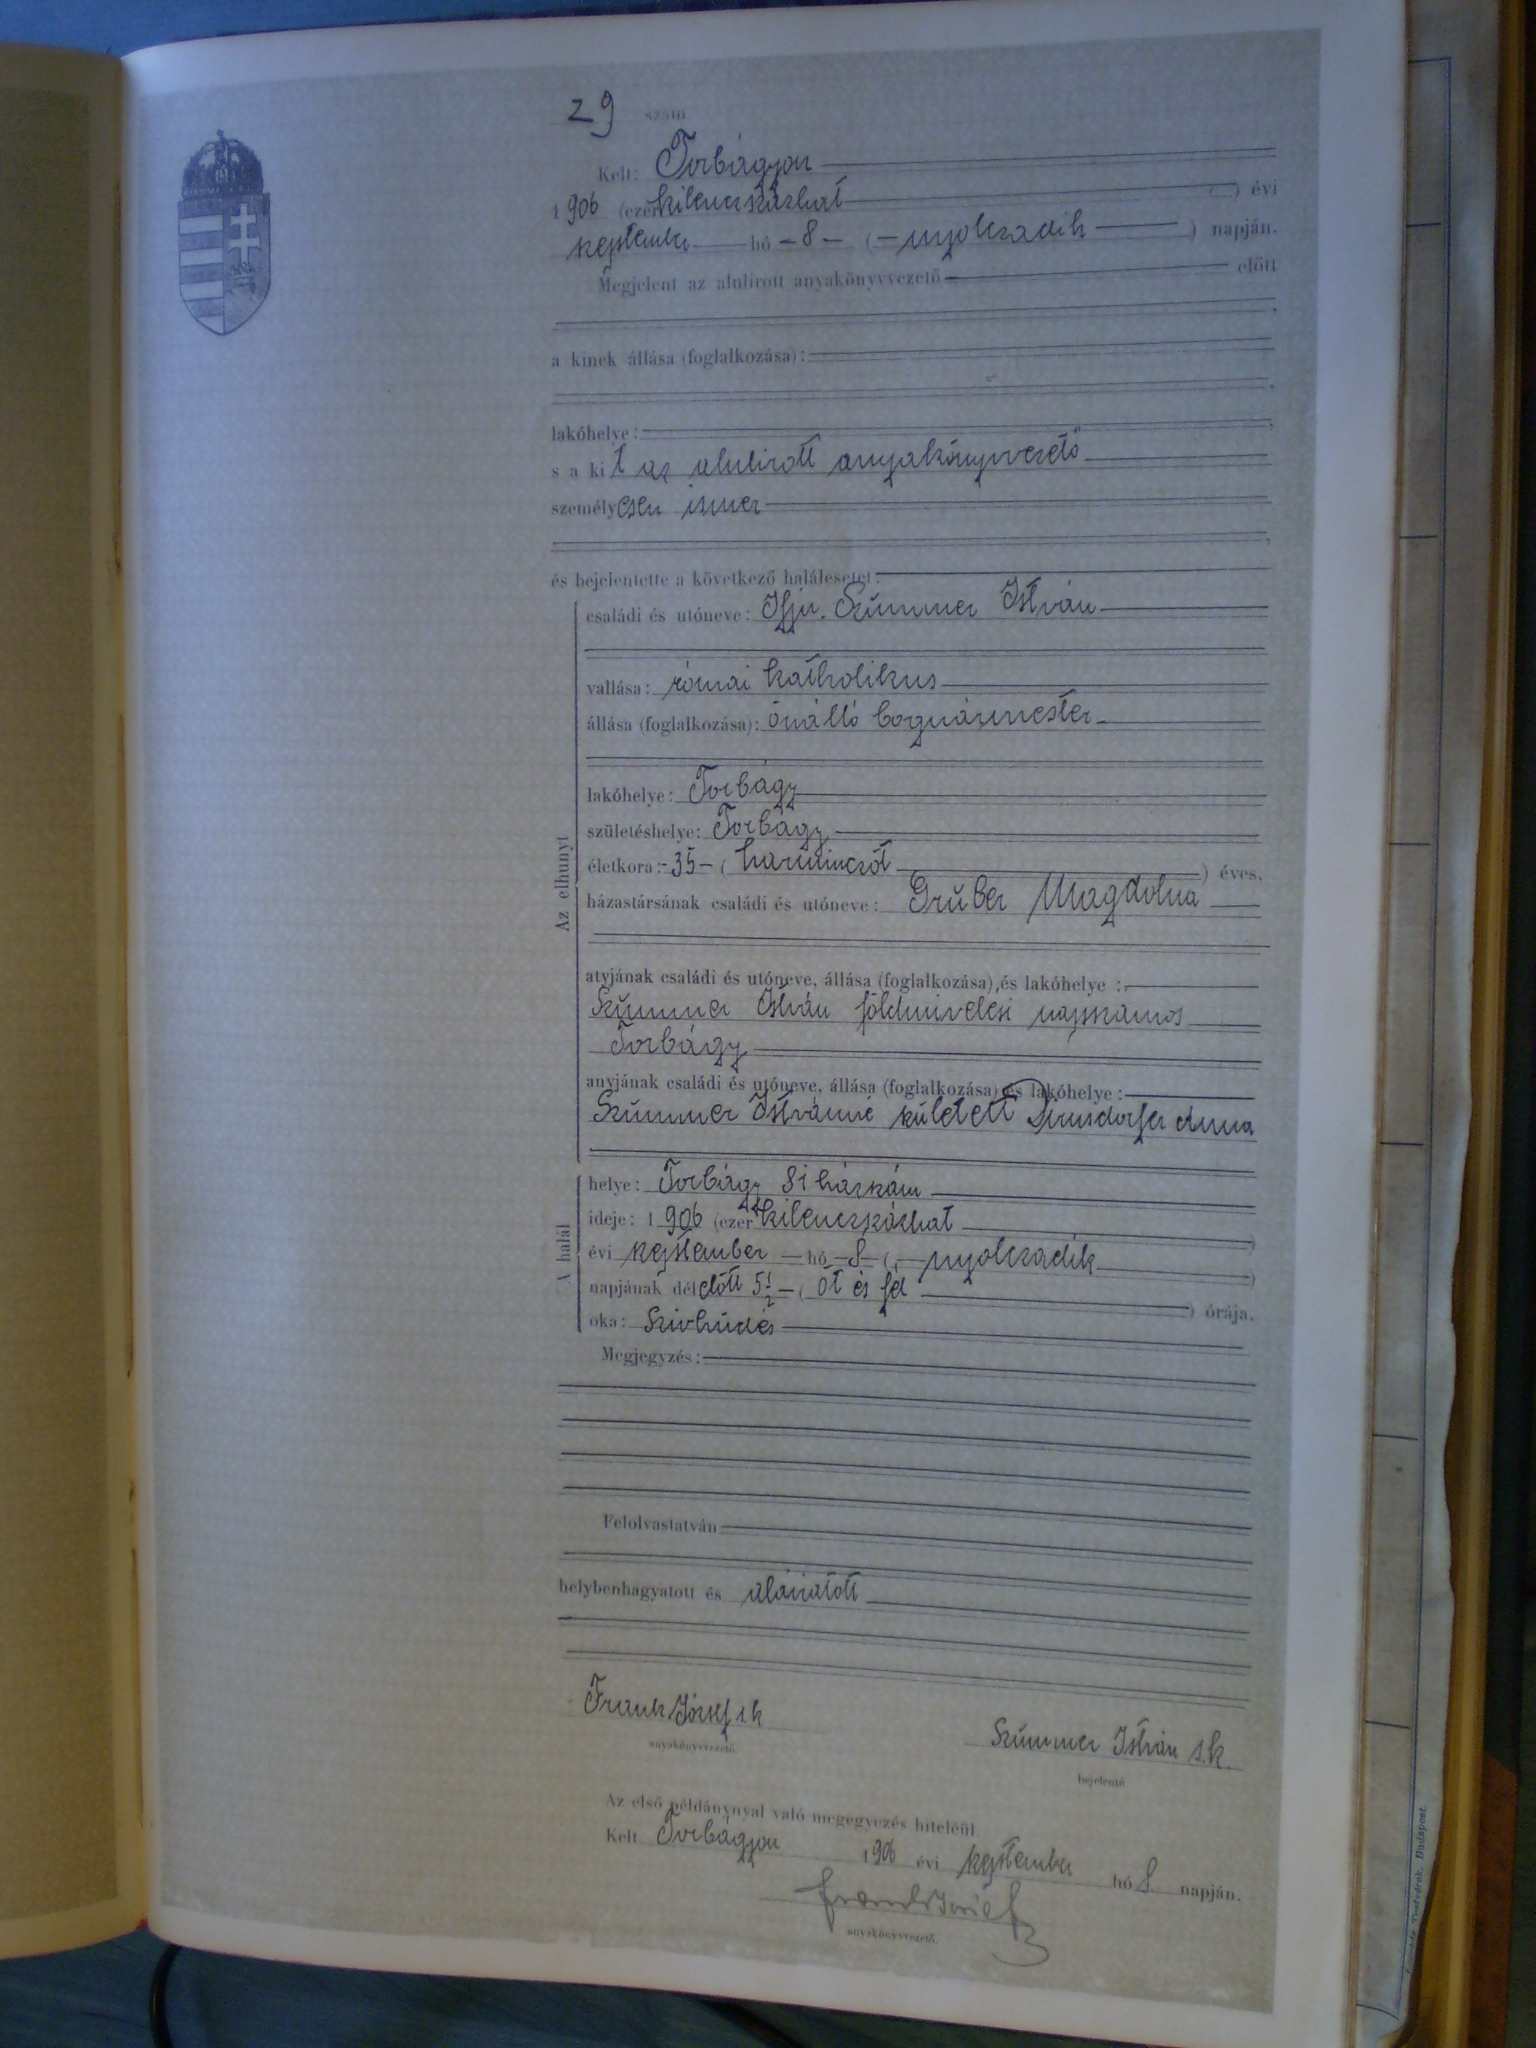 29 szám
Kelt: Torbágyon
1906 (ezerkilenczszázhat ) évi
szeptember hó - 8 - ( - nyolczadik ) napján.
Megjelent az alulirott anyakönyvvezető előtt
a kinek állása (foglalkozása):
lakóhelye:
s a kit az alulirott anyakönyvvezető
személyesen ismer
és bejelentette a következő halálesetet:
Az elhunyt
családi és utóneve: Ifju. Szümmer István
vallása: római katholikus
állása (foglalkozása): önálló bognármester
lakóhelye: Torbágy
születéshelye: Torbágy
életkora: - 35 - ( harmincöt ) éves,
házastársának családi és utóneve: Gruber Magdolna
atyjának családi és utóneve, állása (foglalkozása), és lakóhelye :
Szümmer István földmivelesi napszámos
Torbágy
anyjának családi és utóneve, állása (foglalkozása) és lakóhelye :
Szümmer Istvánné született Anna
A halál
helye: Torbágy 81 házszám
ideje: 1906 (ezerkilenczszázhat )
évi szeptember hó - 8 - ( - nyolczadik )
napjának délelőtt 5 1/2 - ( öt és fél ) órája,
oka: Szivhüdés
Megjegyzés:
Felolvastatván
helybenhagyatott és aláiratott
Frank József s.k
anyakönyvvezető.
Szümmer István s.k.
bejelentő
Az első példánynyal való megegyezés hiteléül.
Kelt Torbágyon 1906 évi szeptember hó 8 napján.
Frank József
anyakönyvvezető.
Budapest.